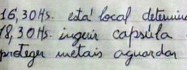 16,30 Hs. está local determin
18,30 Hs. ingerir capsula
proteger metais aguardar